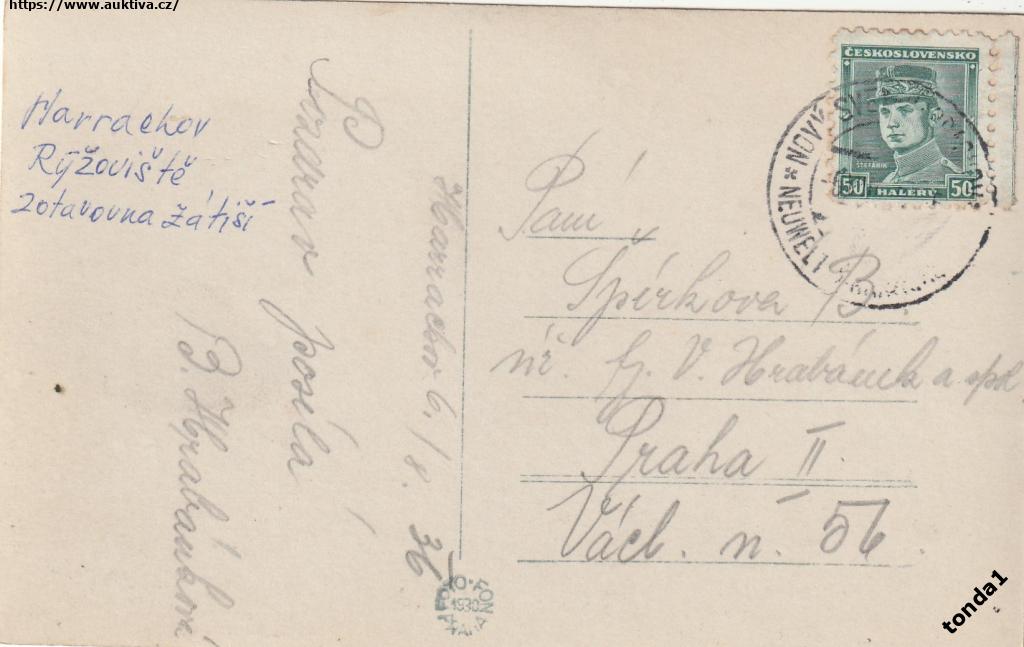 https://www.auktiva.cz/
Harrachov
Rýžoviště
zotavovna Zátiší
Harrachov 6./8. 36
Pozdrav
posílá
B. Hrabánková
ČESKOSLOVENSKO
ŠTEFÁNIK
50 HALÉŘŮ 50
NOVÝ SVĚT
* NEUWELT
Paní
Špérkova B.
Fy. V. Hrabánek a spol
Praha II
Václ. n. 56
FOTO-FON
1930
PRAHA
tonda1